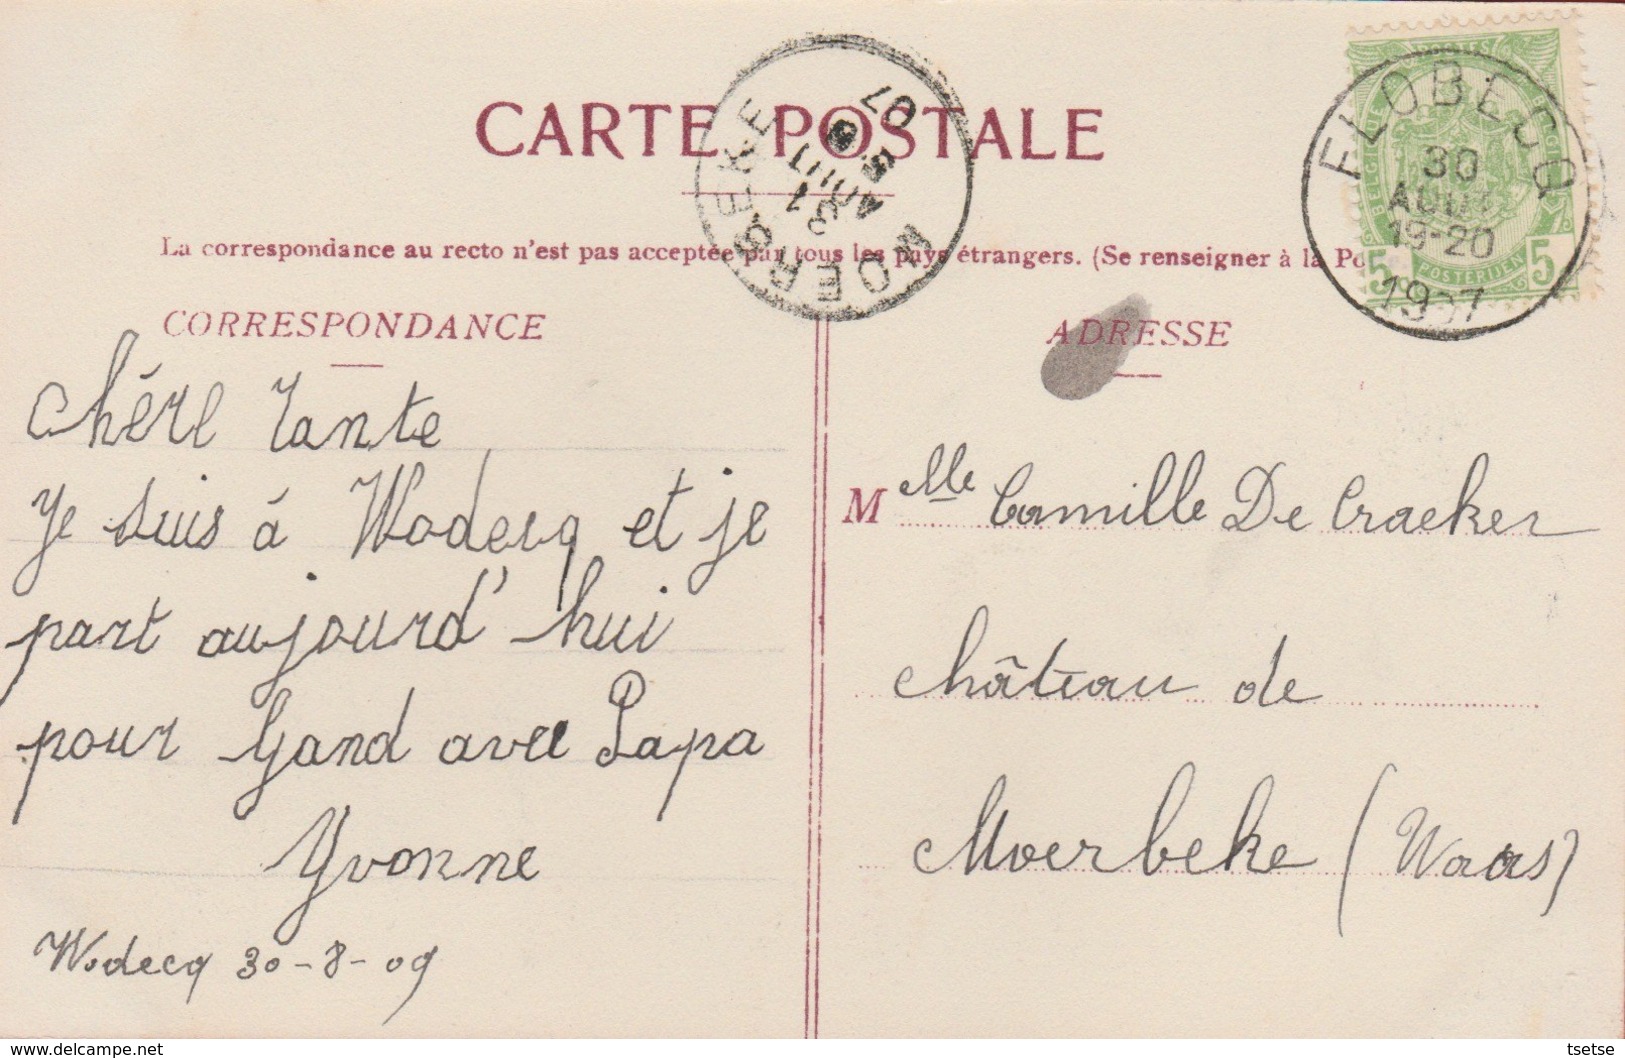 CARTE POSTALE
La correspondance au recto n'est pas acceptée par tous les pays étrangers. (Se renseigner à la Po
CORRESPONDANCE
Chère Tante
Je suis à Wodecq et je
part aujourd'hui
pour Gand avec Papa
Yvonne
Wodecq 30-8-09
ADRESSE
Mlle Camille De Craeker
Château de
Moerbeke (Waas)
MOERBEKE
31
AOUT
07
FLOBECQ
30
AOUT
19-20
1907
5 POSTERIJEN 5
© delcampe.net
tsetse